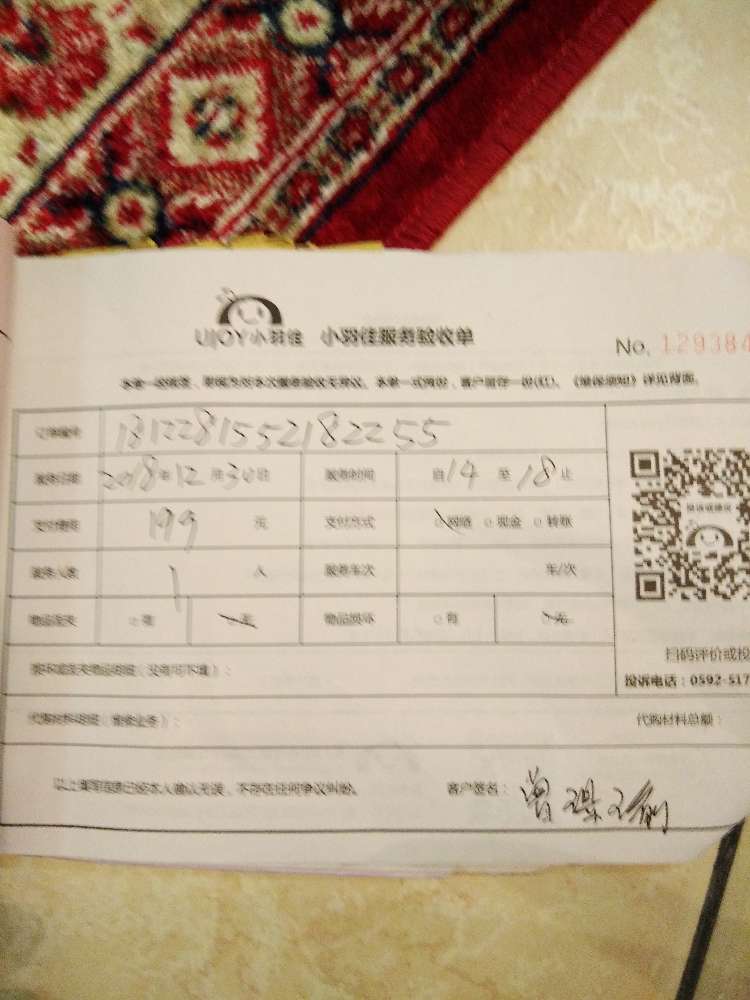 UJOY小羽佳 小羽佳服务验收单
No. 129384
本单一经签署，即视为对本次服务验收无异议。本单一式两份，客户留存一份(红)。《 》详见背面。
订单编号 1812281552182255
服务日期 2018年12月30日 服务时间 自14至18止
支付费用 199 元 支付方式 网络 现金 转账
服务人数 1 人 服务车次 车/次
物品丢失 有 无 物品损坏 有 无
扫码评价或投
损坏或丢失物品明细（没有可不填）：
投诉电话：0592-517
代购材料明细（ 业务）：
代购材料总额：
以上填写信息已经本人确认无误，不存在任何争议纠纷。 客户签名：曾